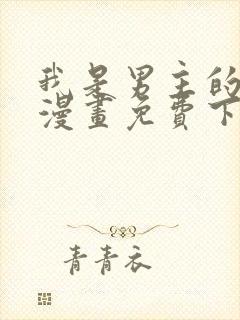 我是男主的
漫畫免費下
青青衣